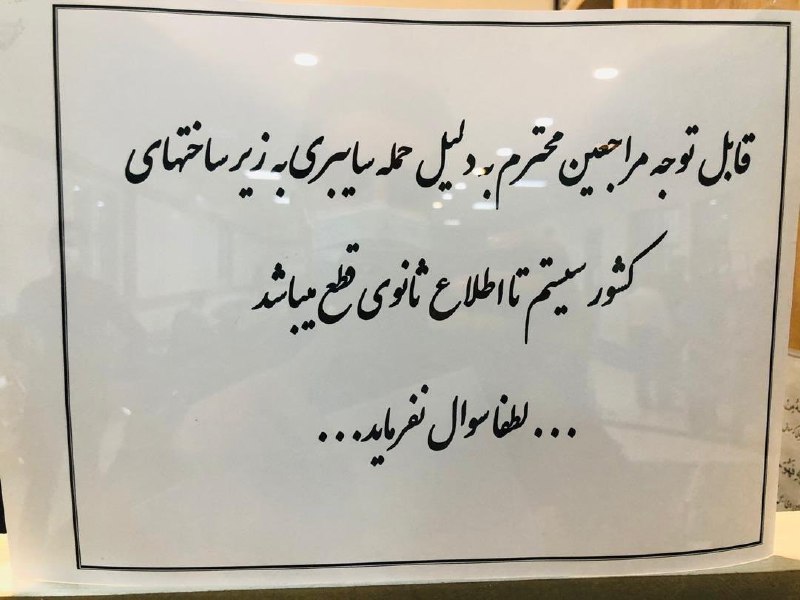 قابل توجه مراجعین محترم به دلیل حمله سایبری به زیر ساختهای
کشور سیستم تا اطلاع ثانوی قطع میباشد
... لطفا سوال نفرماید...